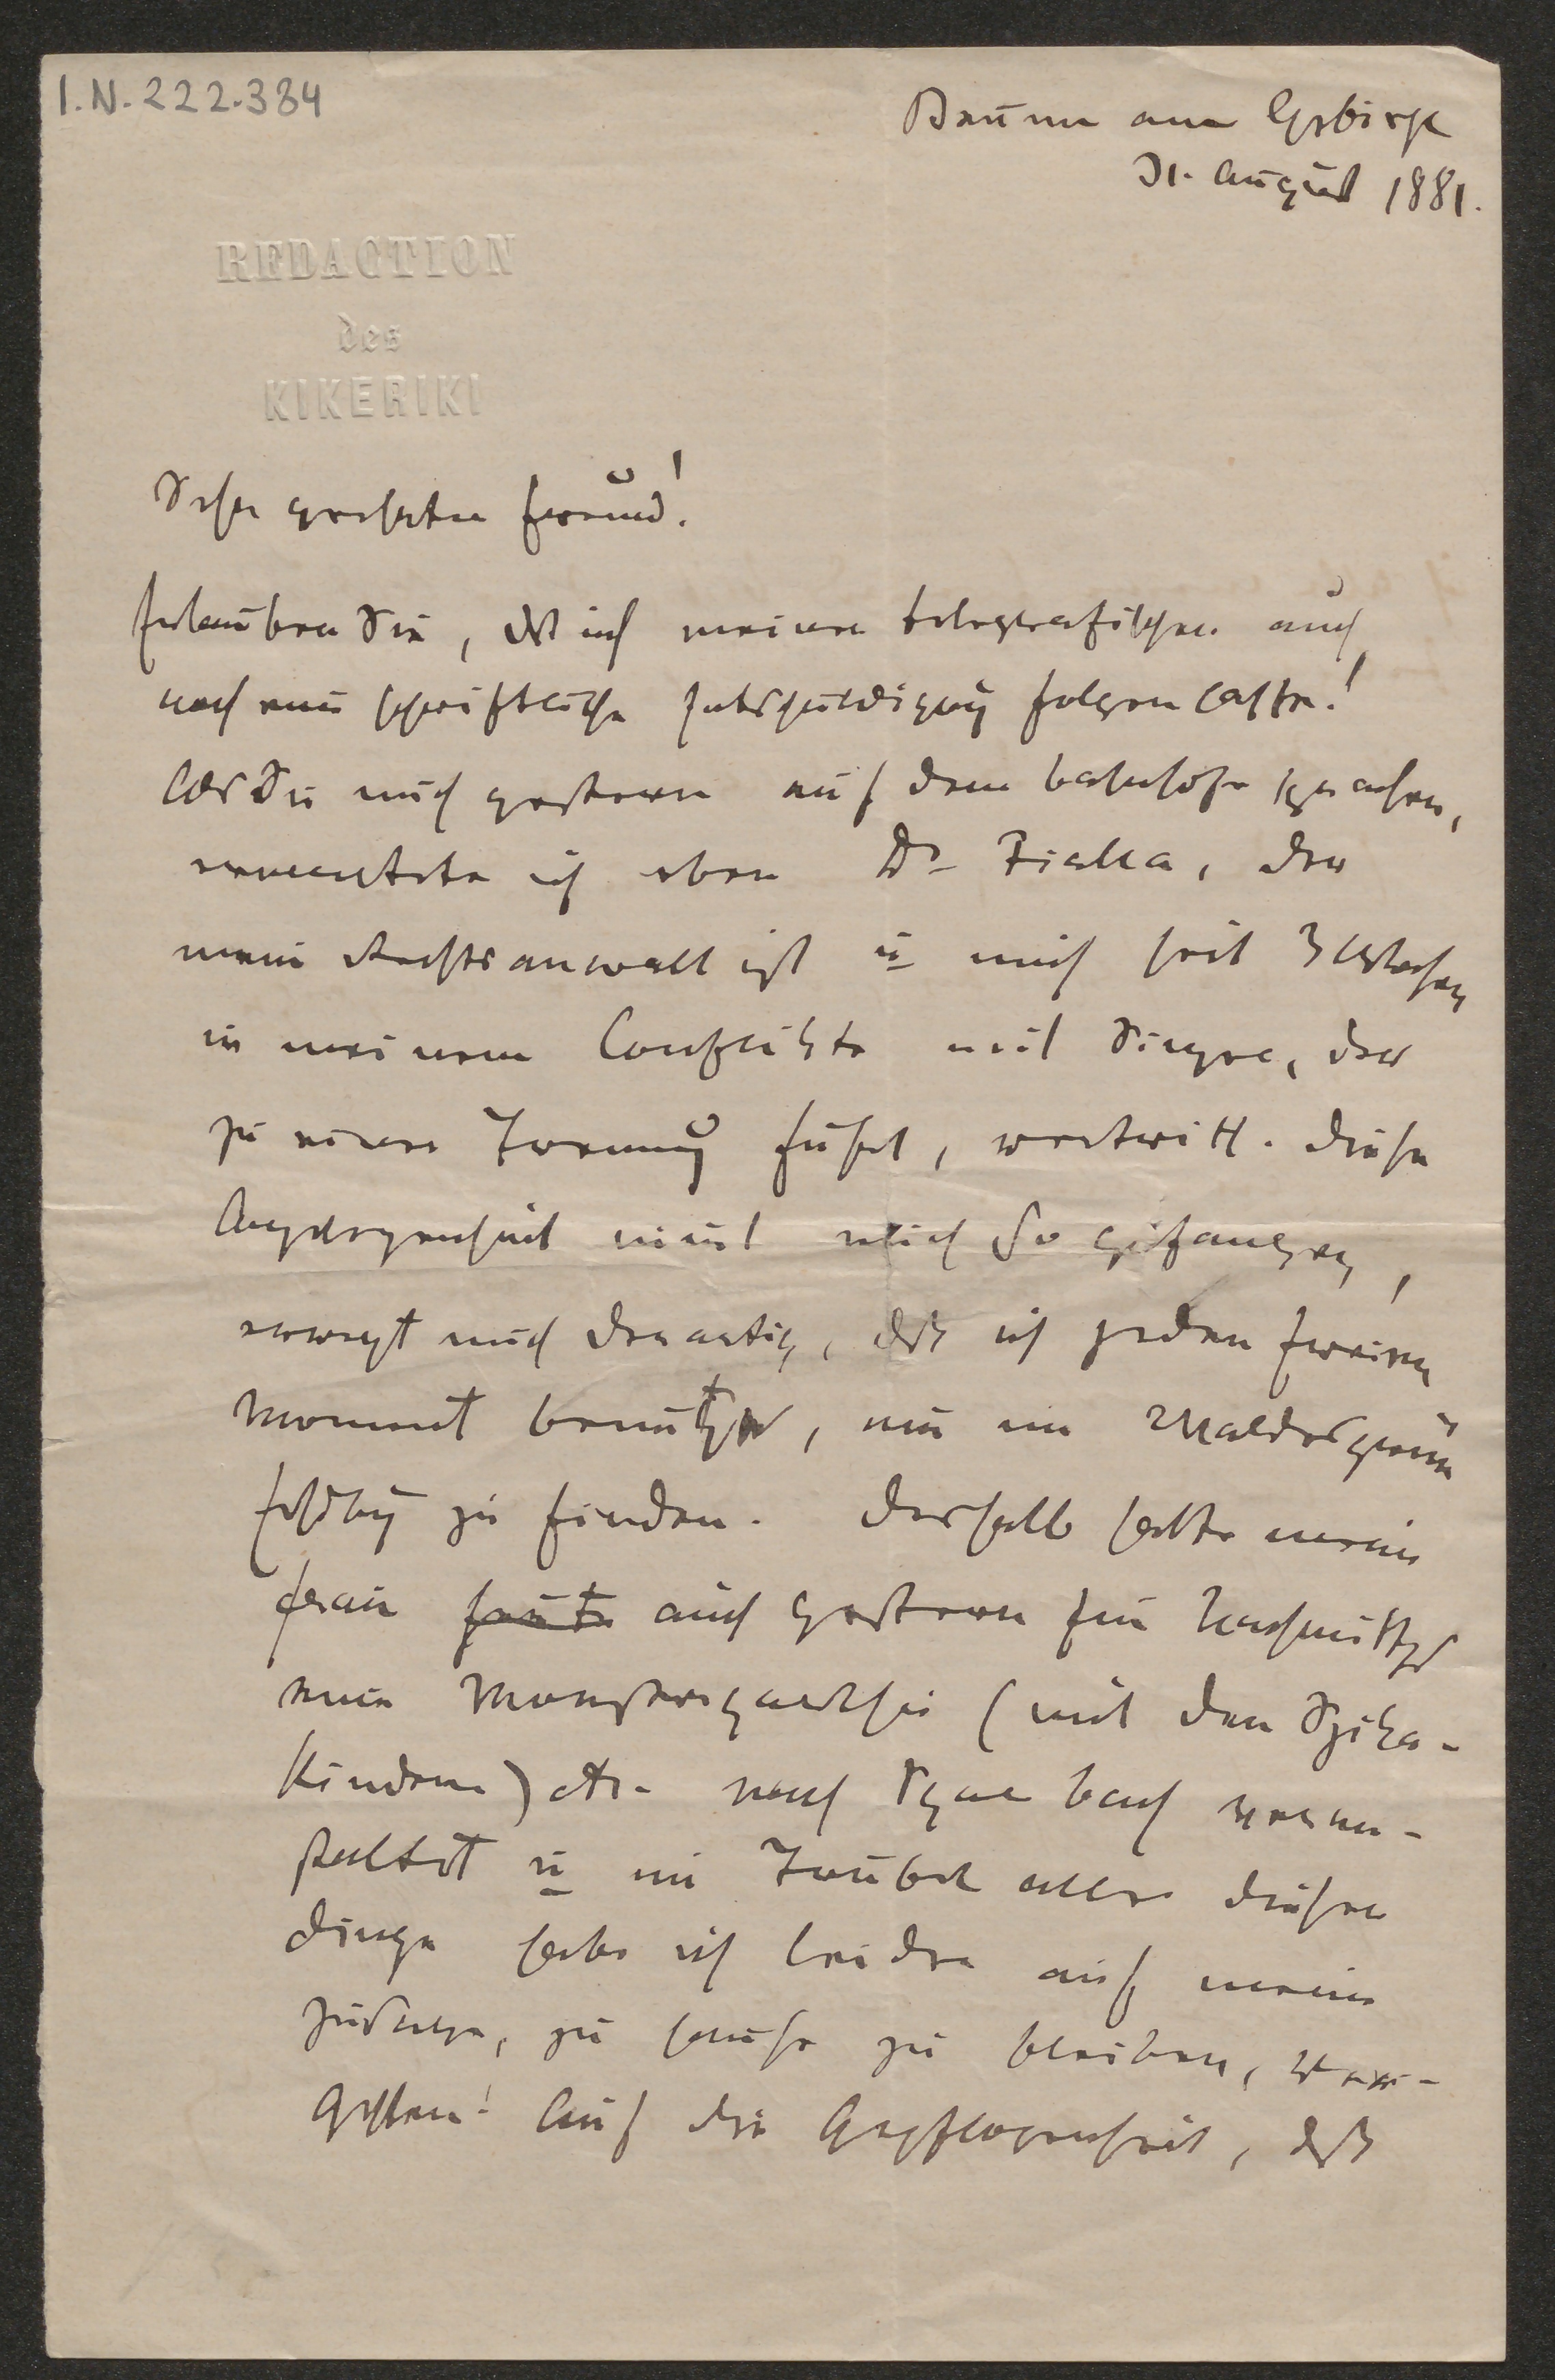 I.N. 222.384
Brunn am Gebirge
31. August 1881.
REDACTION
des
KIKERIKI
Sehr geehrter Freund!
Erlauben Sie, daß ich meiner telegrafischen auch
noch eine schriftliche Entschuldigung folgen lasse!
Als Sie mich gestern auf dem Bahnhofe sprachen,
erwartete ich eben Dr Fialla, der
mein Rechtsanwalt ist u mich seit 3 Wochen
in meinem Conflikte mit Singer, der
zu einer Trennung führt, vertritt. Diese
Angelegenheit nimt mich so gefangen,
erregt mich derartig, daß ich jeden freien
Moment benütze, um im Waldesgrün
Erholung zu finden. Deshalb hatte meine
Frau heute auch gestern für Nachmittgs
eine Monsterparthie (mit den Spitzer-
Kindern) etc. nach veran-
staltet u im Trubel aller dieser
Dinge habe ich leider auf meine
Zusage, zu Hause zu bleiben, ver-
gessen! Auf die Gepflogenheit, daß